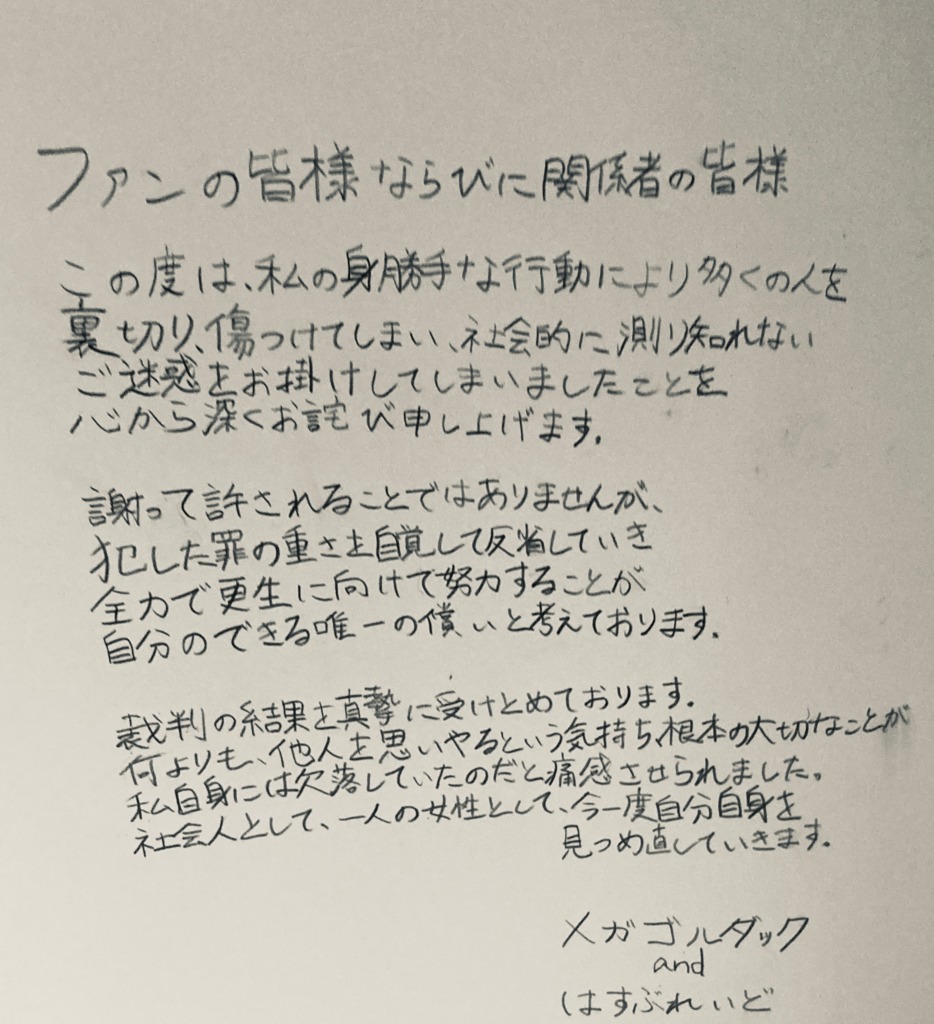 ファンの皆様ならびに関係者の皆様
この度は、私の身勝手な行動により多くの人を
裏切り、傷つけてしまい、社会的に測り知れない
ご迷惑をお掛けしてしまいましたことを
心から深くお詫び申し上げます。
謝って許されることではありませんが、
犯した罪の重さを自覚して反省していき
全力で更生に向けて努力することが
自分のできる唯一の償いと考えております。
裁判の結果を真摯に受けとめております。
何よりも、他人を思いやるという気持ち、根本の大切なことが
私自身には欠落していたのだと痛感させられました。
社会人として、一人の女性として、今一度自分自身を
見つめ直していきます。
メガゴルダック
and
はすぶれいど